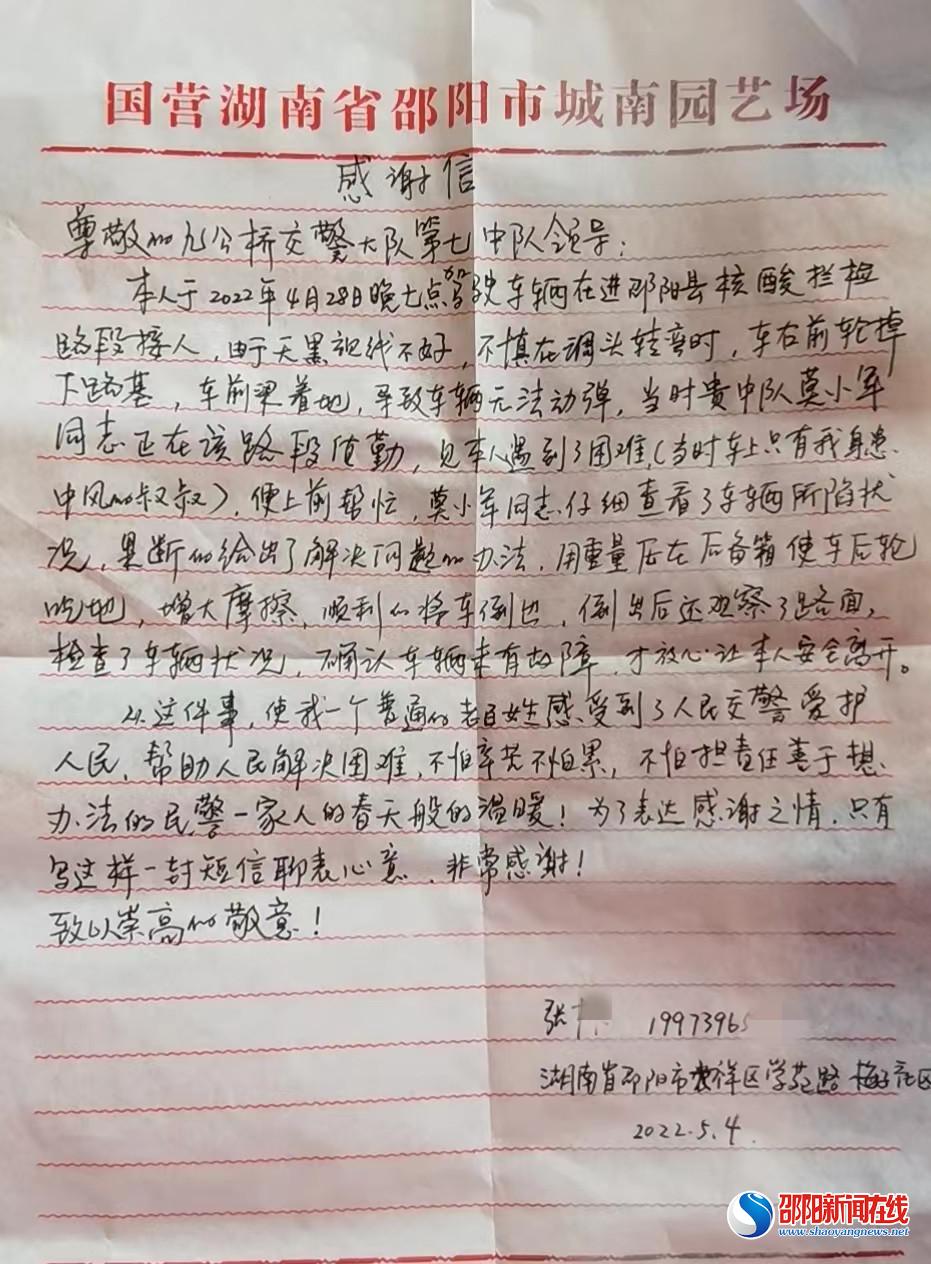 国营湖南省邵阳市城南园艺场
感谢信
尊敬的九公桥交警大队第七中队领导：
本人于2022年4月28日晚七点左右驾驶车辆在进邵阳县核酸拦检
路段接人，由于天黑视线不好，不慎在调头转弯时，车右前轮掉
下路基，车前梁着地，导致车辆无法动弹，当时贵中队莫小军
同志正在该路段值勤，见本人遇到了困难，（当时车上只有我身患
中风的叔叔），便上前帮忙，莫小军同志仔细查看了车辆所陷状
况，果断的给出了解决问题的办法，用重量压在后备箱使车后轮
吃地，增大摩擦，顺利的将车倒出，倒出后还观察了路面，
检查了车辆状况，确认车辆未有故障，才放心让本人安全离开。
从这件事，使我一个普通的老百姓感受到了人民交警爱护
人民，帮助人民解决困难，不怕辛苦不怕累，不怕担责任善于想
办法的民警一家人的春天般的温暖！为了表达感谢之情，只有
写这样一封短信聊表心意，非常感谢！
致以崇高的敬意！
张 19973965
湖南省邵阳市大祥区学苑路梅子社区
2022.5.4.
邵阳新闻在线
www.shaoyangnews.net